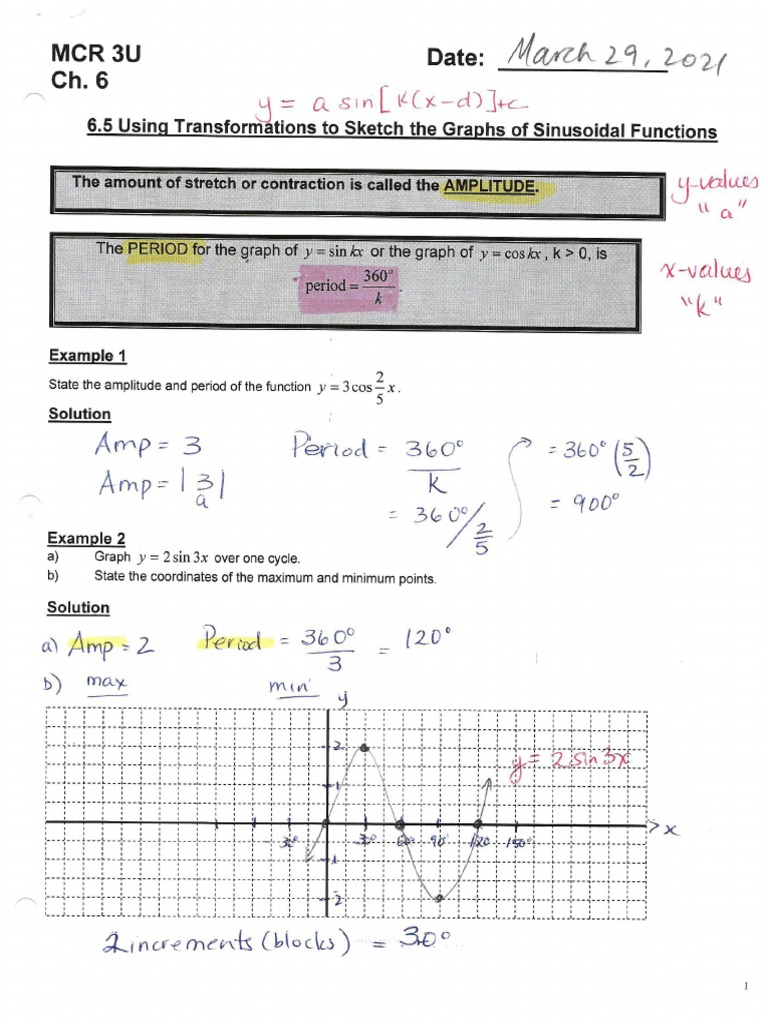 MCR 3U
Date: March 29, 2021
Ch. 6
y = a sin[k(x-d)]+c
6.5 Using Transformations to Sketch the Graphs of Sinusoidal Functions
The amount of stretch or contraction is called the AMPLITUDE.
y-values
"a"
The PERIOD for the graph of y = sin kx or the graph of y = cos kx, k > 0, is
period = 360°/k.
x-values
"k"
Example 1
State the amplitude and period of the function y = 3cos 2/5 x.
Solution
Amp = 3 Period = 360°/k = 360°(5/2)
Amp = |3| = 360°/2/5 = 900°
a
Example 2
a) Graph y = 2 sin 3x over one cycle.
b) State the coordinates of the maximum and minimum points.
Solution
a) Amp = 2 Period = 360°/3 = 120°
b) max min
y
2
y = 2 sin 3x
1
x
-30° 30° 60° 90° 120 150°
-1
-2
2 increments (blocks) = 30°
1